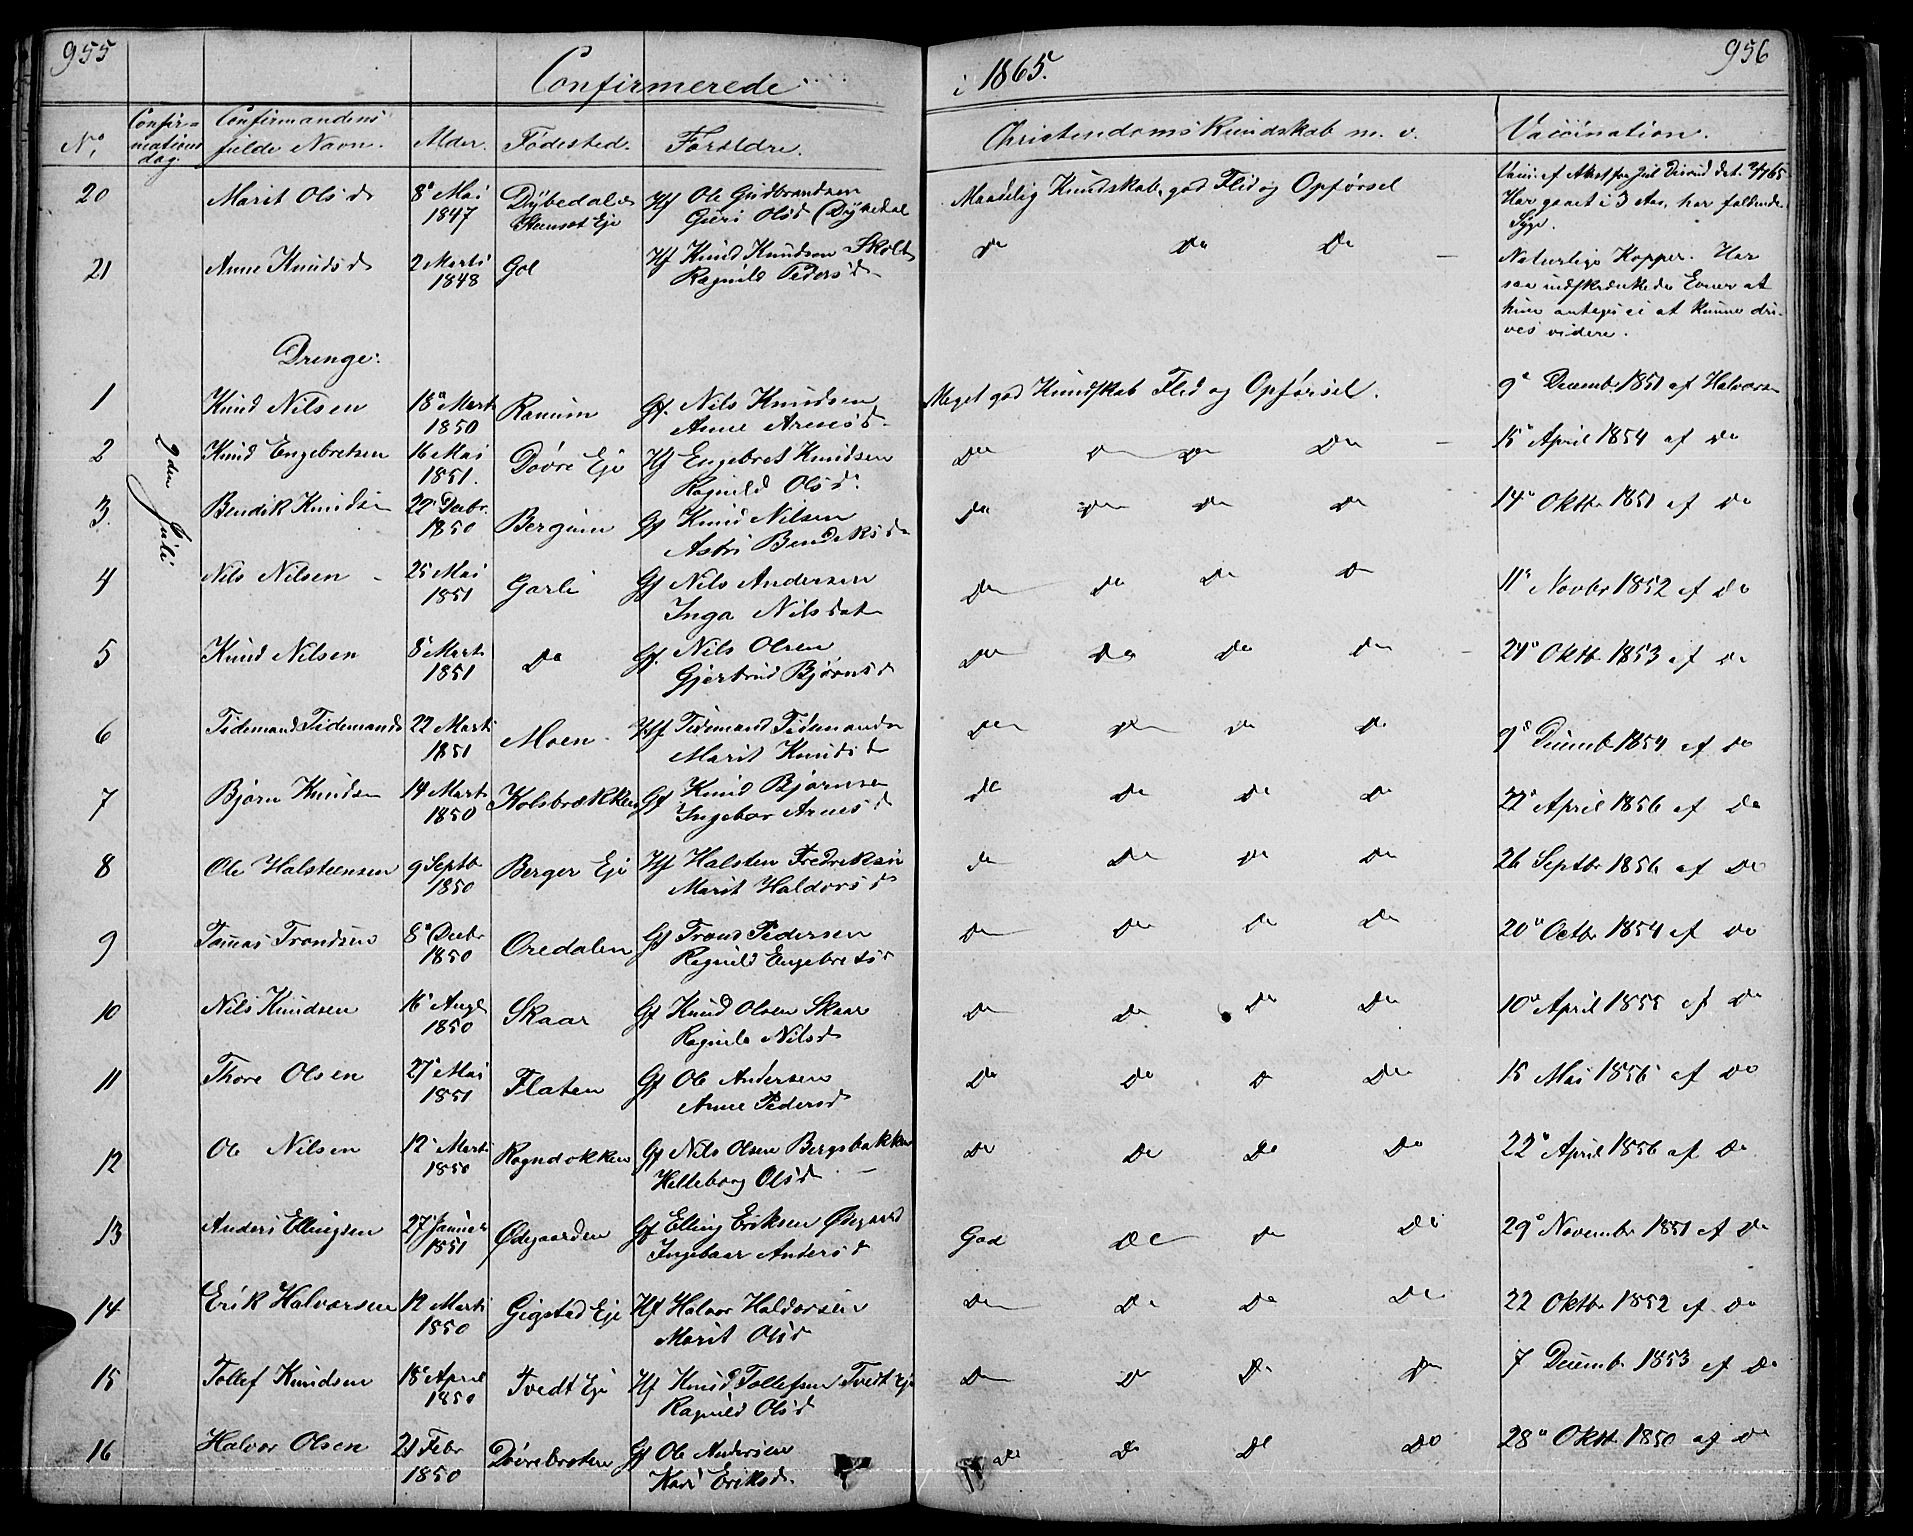 955
Confirmerede
i 1865.
956
No.
Confir-
mations
dag.
Confirmandens
fulde Navn.
Alder.
Fødested.
Forældre.
Christendoms Kundskab m. v.
Vaccination.
20 Marit Olsd 8de Mai Dybedalen Hf Ole Gudbrandsen Maadelig Kundskab, god Flid og Opførsel
1847 Eje Guri Olsd (Dybedal
Har gaaet i 3 Aar, har faldende
Syge.
21 Anne Knudsd 2 Marts Gol Hf Knud Knudsen Skolt Do Do Do Naturlige Kopper. Har
1848 Ragnild Pedersd saa indskrænkede Evner at
hun antages ei at kunne dri-
ves videre.
Drenge:
9den Juli
1 Knud Nilsen 18de Marts Ranum Gf. Nils Knudsen Meget god Kundskab Flid og Opførsel. 9de Decembr 1851 af Halvorsen
1850 Anne Arnesd
2 Knud Engebretsen 16 Mai Døvre Eje Hf Engebret Knudsen Do Do Do Do 15de April 1854 af Do
1851. Ragnild Olsd.
3. Bendik Knudsen 22 Decbr. Bergum Gf Knud Nilsen Do Do Do Do 14de Oktbr 1851 af Do
1850 Astri Bendiksd
4 Nils Nilsen 25 Mai Garli Gf Nils Andersen Do Do Do Do 11te Novbr 1852 af Do
1851 Inga Nilsdat
5 Knud Nilsen 8de Marts Do Gf. Nils Olsen Do Do Do Do 24de Oktbr 1853 af Do
1851 Gjertrud Bjørnsd
6 Tidemand Tidemands 22 Marts Moen Hf Tidemand Tidemands Do Do Do Do 9de Decembr 1854 af Do
1851 Marit Knudsd
7 Bjørn Knudsen 14 Marts Kolsbrækken Gf Knud Bjørnsen Do Do Do Do 22de April 1856 af Do
1850 Ingebor Arnesd
8 Ole Halsteensen 9 Septb Berger Eje Hf Halsten Fredriksen Do Do Do Do 26 Septbr 1856 af Do
1850 Marit Haldorsd
9 Tomas Trondsen 8de Decbr Oredalen Gf Trond Pedersen Do Do Do Do 20de Octbr 1854 af Do
1850 Ragnild Engebretsd
10 Nils Knudsen 16de Augt Skaar Gf Knud Olsen Skaar Do Do Do Do 10de April 1855 af Do
1850 Ragnild Nilsd
11 Thore Olsen 27de Mai Flaten Gf Ole Andersen Do Do Do Do 15 Mai 1856 af Do
1851 Anne Pedersd
12 Ole Nilsen 12te Marts Rogndokken Gf Nils Olsen Bergsbakken Do Do Do Do 22de April 1856 af Do
1850 Helleborg Olsd
13 Anders Ellingsen 27 Januar Ødegaarden Gf Elling Eriksen Ødegaard God Do Do Do 29de November 1851 af Do
1851 Ingebaar Andersd
14 Erik Halvorsen 12 Marts Gigstad Eje Hf Halvor Haldorsen Do Do Do Do 22 Oktbr 1852 af Do
1850 Marit Olsd
15 Tollef Knudsen 18de April Tvedt Eje Hf Knud Tollefsen Tvedt Eje Do Do Do Do 7 Decembr 1853 af Do
1850 Ragnild Olsd
16 Halvor Olsen 21 Febr Døvrebroten Gf Ole Andersen Do Do Do Do 28de Oktbr 1850 af Do
1850 Kari Eriksd.